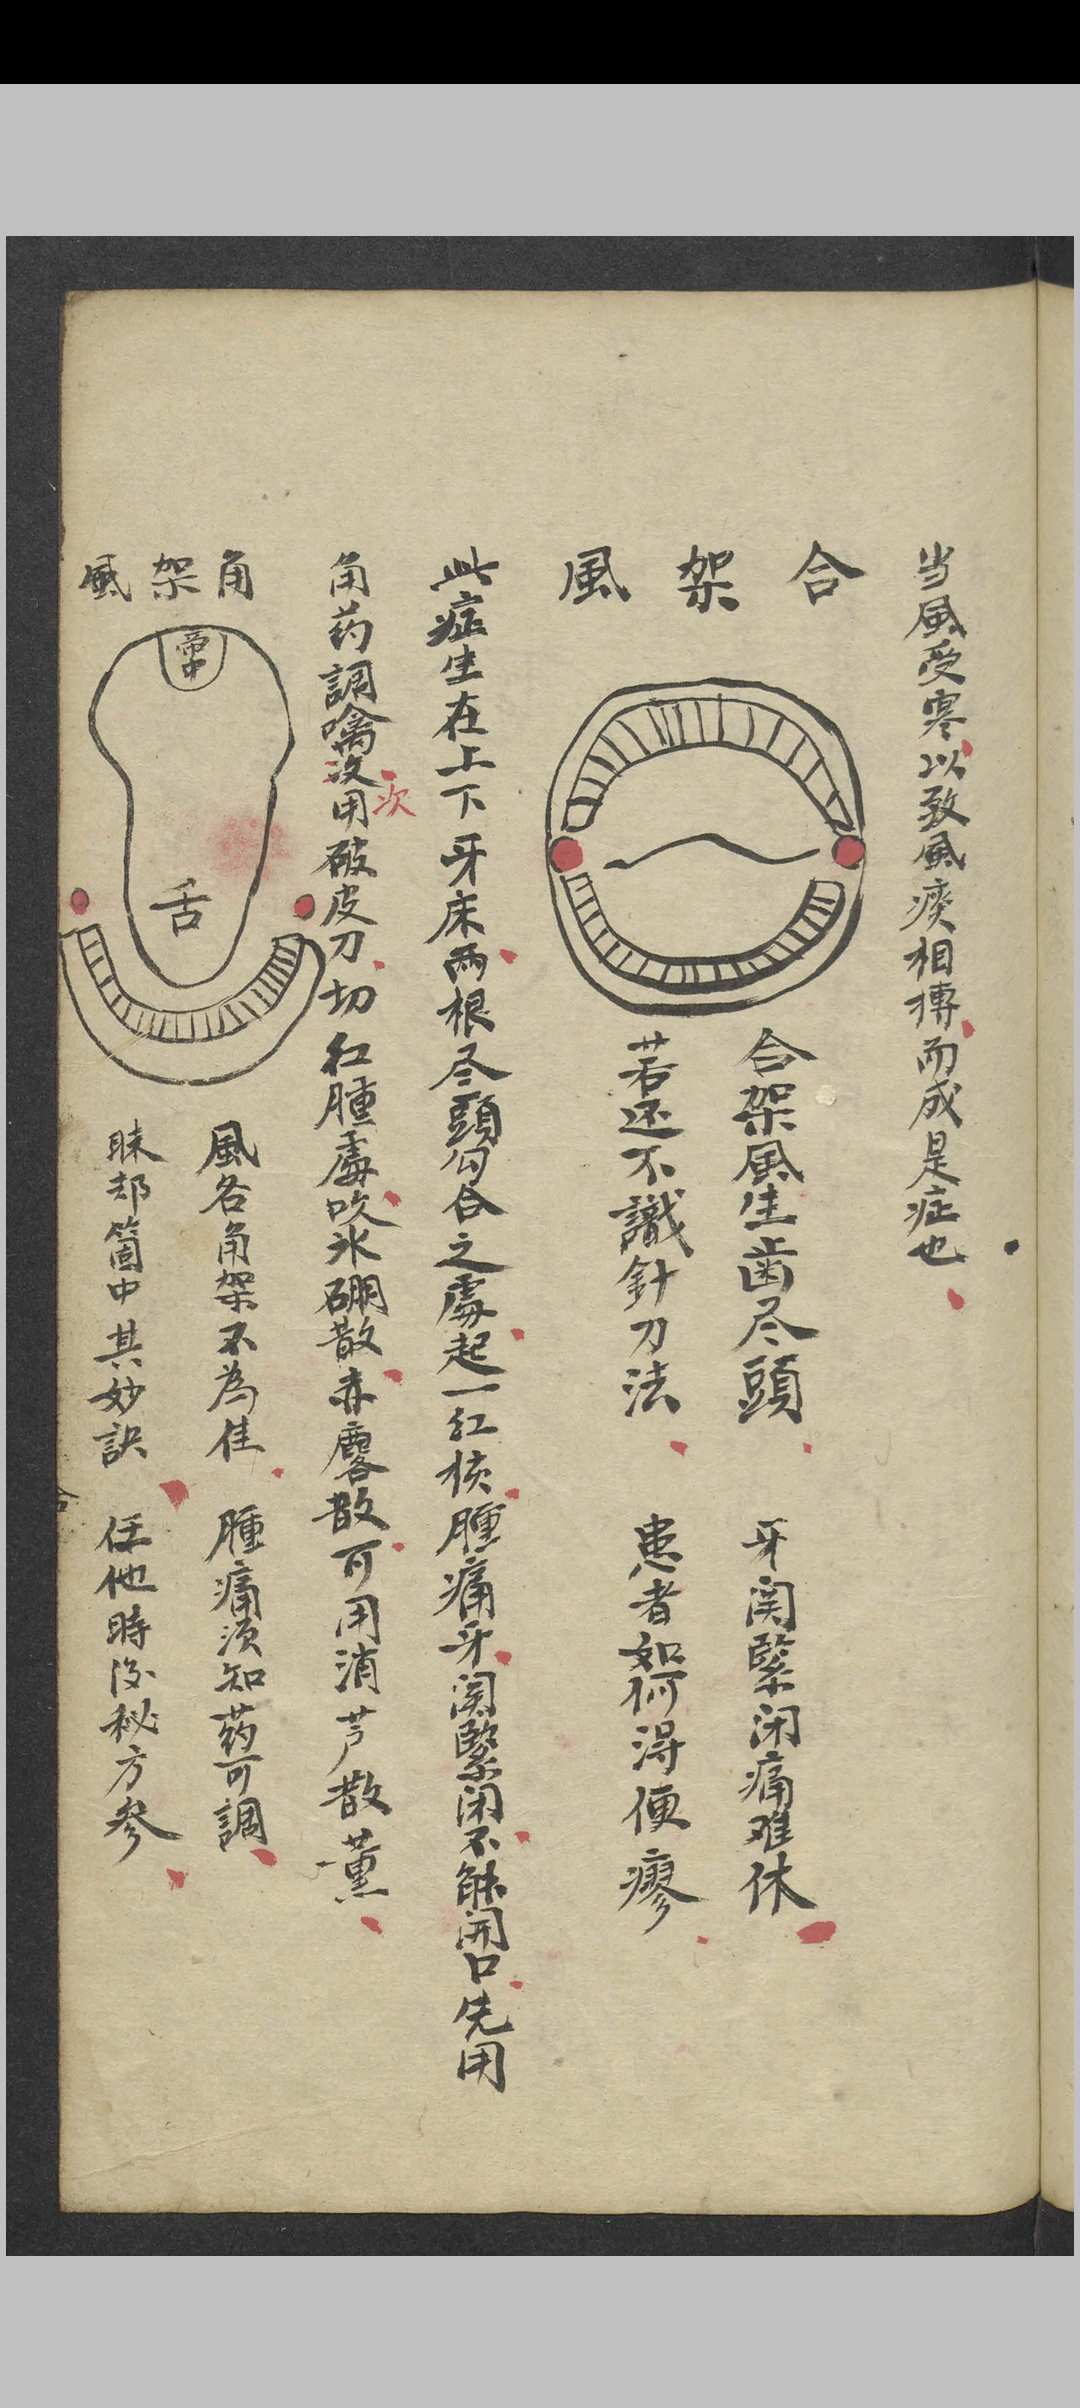 当風受寒以致風痰相搏而成是症也
合架風
合架風生齒尽頭 牙関緊闭痛难休
若还不識針刀法 患者如何得便瘳
此症生在上下牙床两根尽頭勾合之處起一紅核腫痛牙関緊闭不能開口先用
角药調噙次用破皮刀切紅腫處吹氷硼散赤麐散可用消芦散薰
次
角架風
舌
風名角架不為佳 腫痛須知药可調
昧却箇中其妙訣 任他時後秘方參